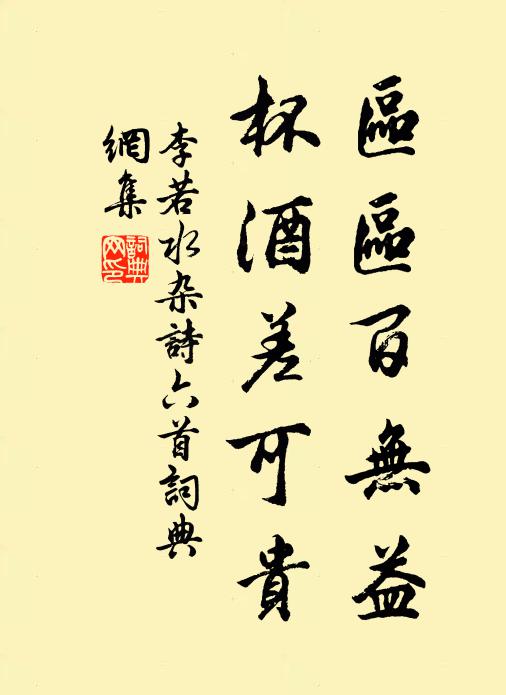 區區百無益
杯酒差可貴
李若水杂詩六首詞典
網集
詞典网印